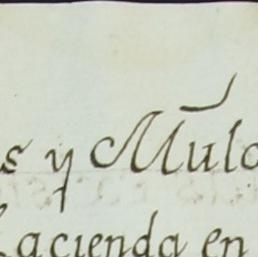 s y Mula
Hacienda en